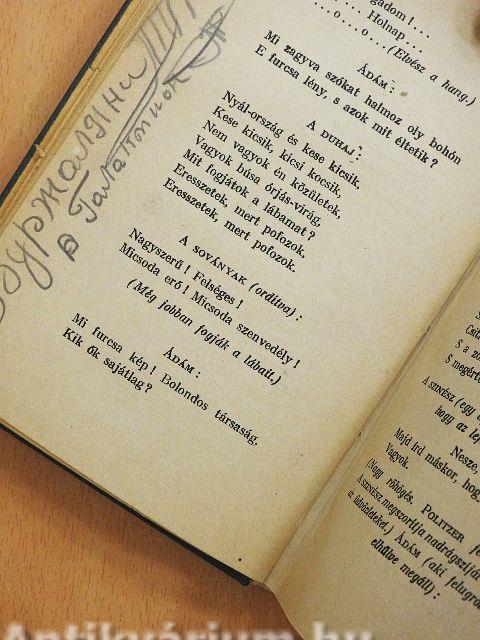 gadom! . . .
. . . Holnap . . .
. . . o . . . o . . . (Elvész a hang.)
ÁDÁM:
Mi zagyva szókat halmoz oly bohón
E furcsa lény, s azok mit éltetik?
A DUHAJ:
Nyál-ország és kese kicsik,
Kese kicsik, kicsi kocsik,
Nem vagyok én közületek,
Vagyok búsa órjás-virág,
Mit fogjátok a lábamat?
Eresszetek, mert pofozok,
Eresszetek, mert pofozok.
A SOVÁNYAK (ordítva):
Nagyszerű! Felséges!
Micsoda erő! Micsoda szenvedély!
(Még jobban fogják a lábait.)
ÁDÁM:
Mi furcsa kép! Bolondos társaság,
Kik ők sajátlag?
S a zö
S megért
A SZINÉSZ (egy
hogy az lep
Nesze,
Majd írd máskor, hogy
Vagyok.
(Nagy röhögés. POLITZER fe
A SZINÉSZ megszorítja nadrágszíját
az üdvözleteket.) ÁDÁM (aki felugro
elhűlve megáll):
Antikvárium.hu